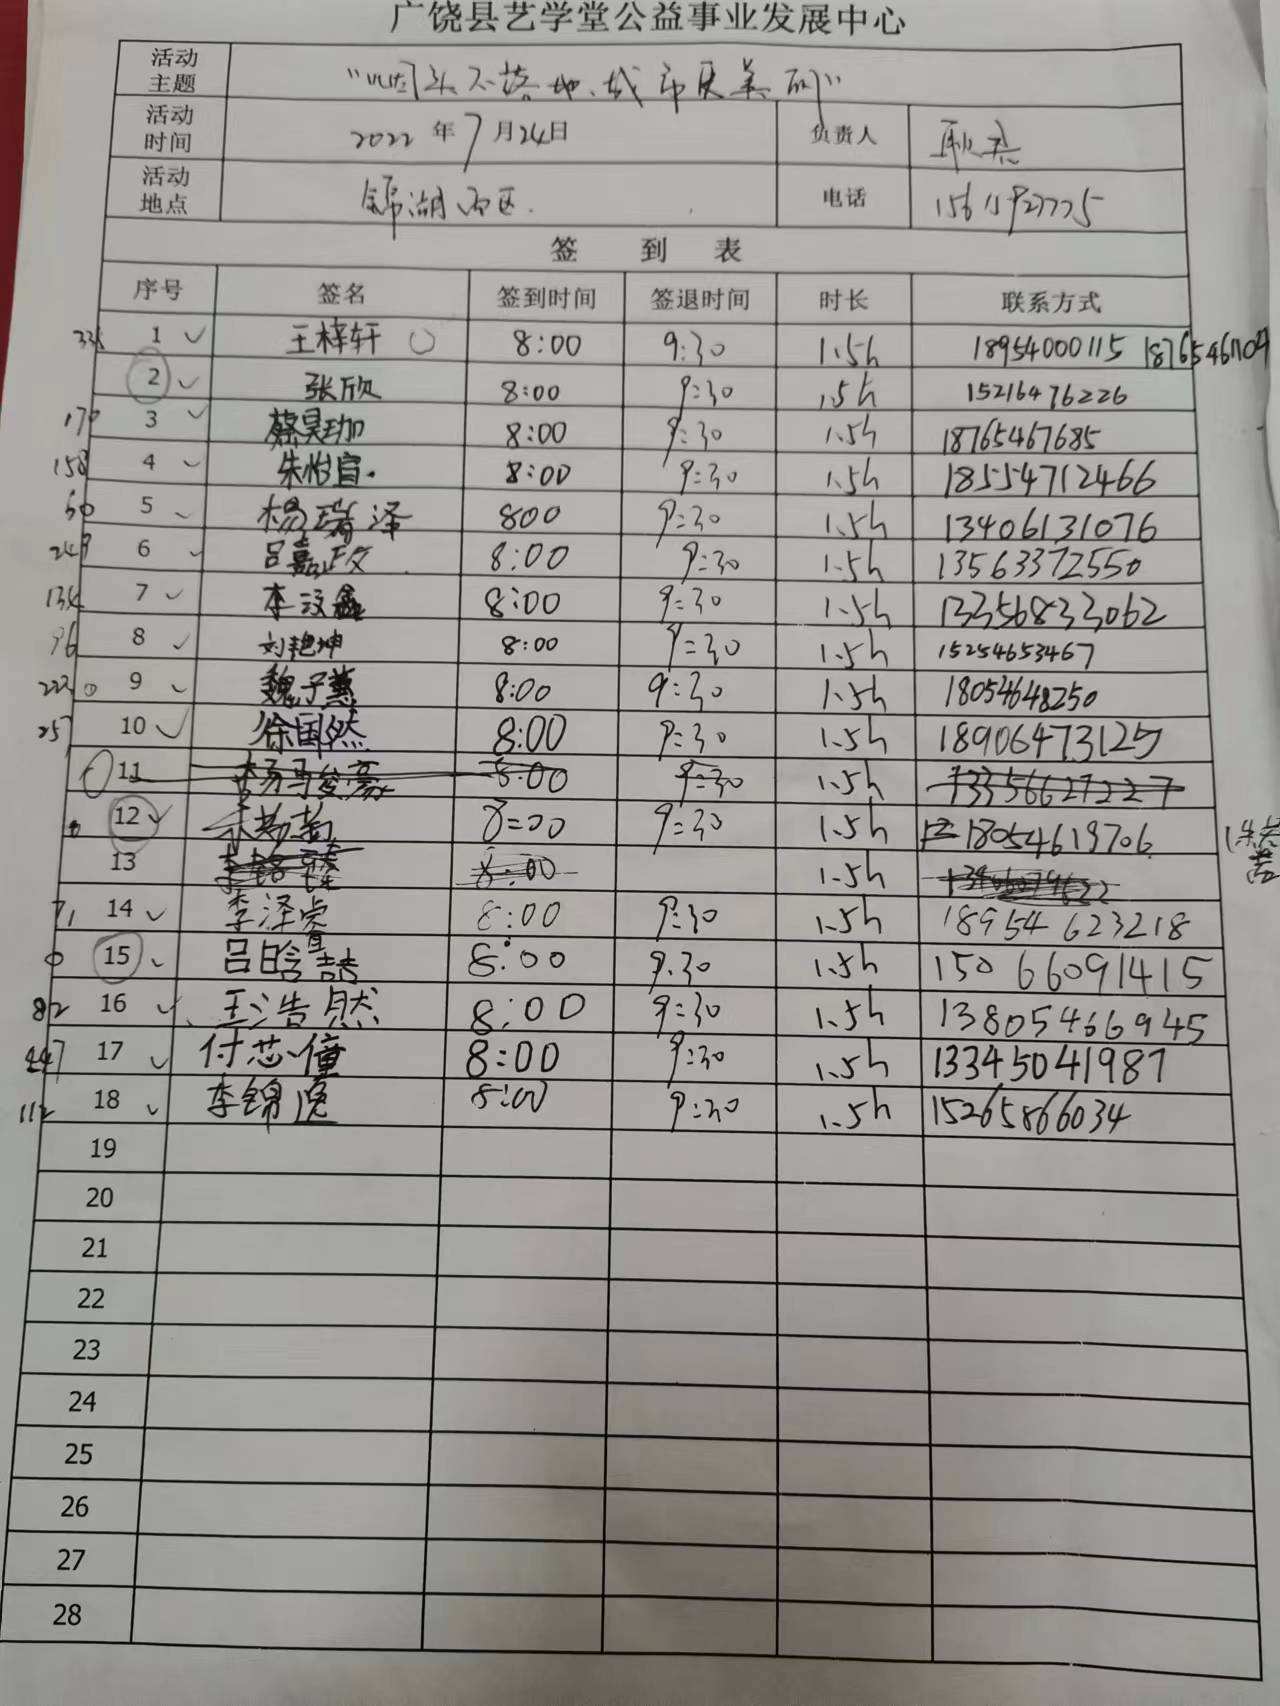 广饶县艺学堂公益事业发展中心
活动主题 “烟头不落地、城市更美丽”
活动时间 2022年7月24日 负责人
活动地点 锦湖西区. 电话 15615927775
签 到 表
序号 签名 签到时间 签退时间 时长 联系方式
336 1 ✓ 王梓轩 ○ 8:00 9:30 1.5h 18954000115
2 ✓ 张欣 8:00 9:30 1.5h 15216476226
170 3 ✓ 蔡昊珈 8:00 9:30 1.5h 18765467685
158 4 ✓ 朱怡宣. 8:00 9:30 1.5h 18554712466
60 5 ✓ 杨瑞泽 800 9:30 1.5h 13406131076
249 6 ✓ 吕嘉政 8:00 9:30 1.5h 13563372550
134 7 ✓ 李汶鑫 8:00 9:30 1.5h 13356833062
96 8 ✓ 刘艳坤 8:00 9:30 1.5h 15254653467
223 9 ✓ 魏子薰 8:00 9:30 1.5h 18054648250
257 10 ✓ 徐国然 8:00 9:30 1.5h 18906473125
11 8:00 9:30 1.5h 13356627227
12 ✓ 8:00 9:30 1.5h 18054619706
13 8:00 1.5h
71 14 ✓ 李泽睿 8:00 9:30 1.5h 18954623218
0 15 ✓ 吕晗喆 8:00 9:30 1.5h 15066091415
82 16 ✓ 王浩然 8:00 9:30 1.5h 13805466945
247 17 ✓ 付芯僮 8:00 9:30 1.5h 13345041987
112 18 ✓ 李锦逸 8:00 9:30 1.5h 15265866034
19
20
21
22
23
24
25
26
27
28